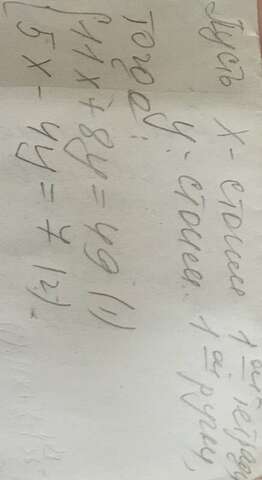 Пусть x - стоим 1ой тетради
y - стоим. 1ой ручки,
Тогда:
{ 11x + 8y = 49 (1)
5x - 4y = 7 (2).